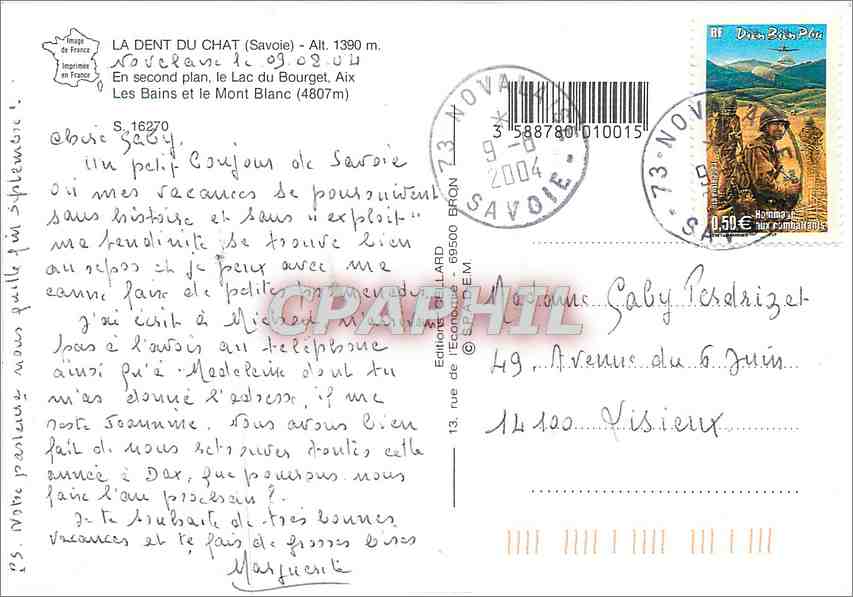 Image
de France
Imprimée
en France
LA DENT DU CHAT (Savoie) - Alt. 1390 m.
Novalaise le 09.08.04
En second plan, le Lac du Bourget, Aix
Les Bains et le Mont Blanc (4807m)
S. 16270
3 588780 010015
73 NOVALAISE
9-8
2004
SAVOIE
RF
Diên Biên Phu
0,50 €
Hommage
aux combattants
73-NOVALAISE
SAVOIE
Chère Gaby,
Un petit bonjour de Savoie
où mes vacances se poursuivent
sans histoire et sans "exploit"
ma tendinite se trouve bien
au repos et je peux avec ma
canne faire de petites promenades
J'ai écrit à Michou n'arrivant
pas à l'avoir au téléphone
ainsi qu'à Madeleine dont tu
m'as donné l'adresse, il me
reste Jeannine. Nous avons bien
fait de nous retrouver toutes cette
année à Dax, que pourrons nous
faire l'an prochain ?
Je te souhaite de très bonnes
vacances et te fais de grosses bises
Marguerite
PS. Notre pasteure nous quitte fin septembre !
Editions GILLARD
13, rue de l'Economie - 69500 BRON
© S.P.A.D.E.M
CPAPHIL
Madame Gaby Perdrizet
49, Avenue du 6 Juin
14100 Lisieux